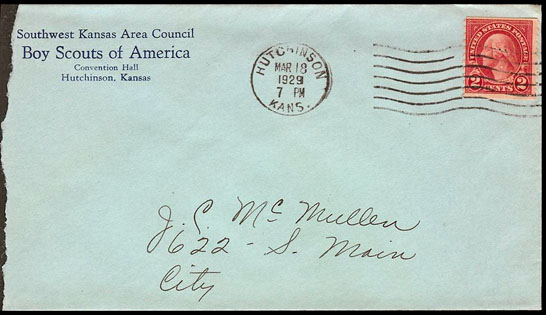 Southwest Kansas Area Council
Boy Scouts of America
Convention Hall
Hutchinson, Kansas
HUTCHINSON
MAR 18
1929
7 PM
KANS.
UNITED STATES POSTAGE
2 CENTS 2
J. C. McMullen
622 - S. Main
City